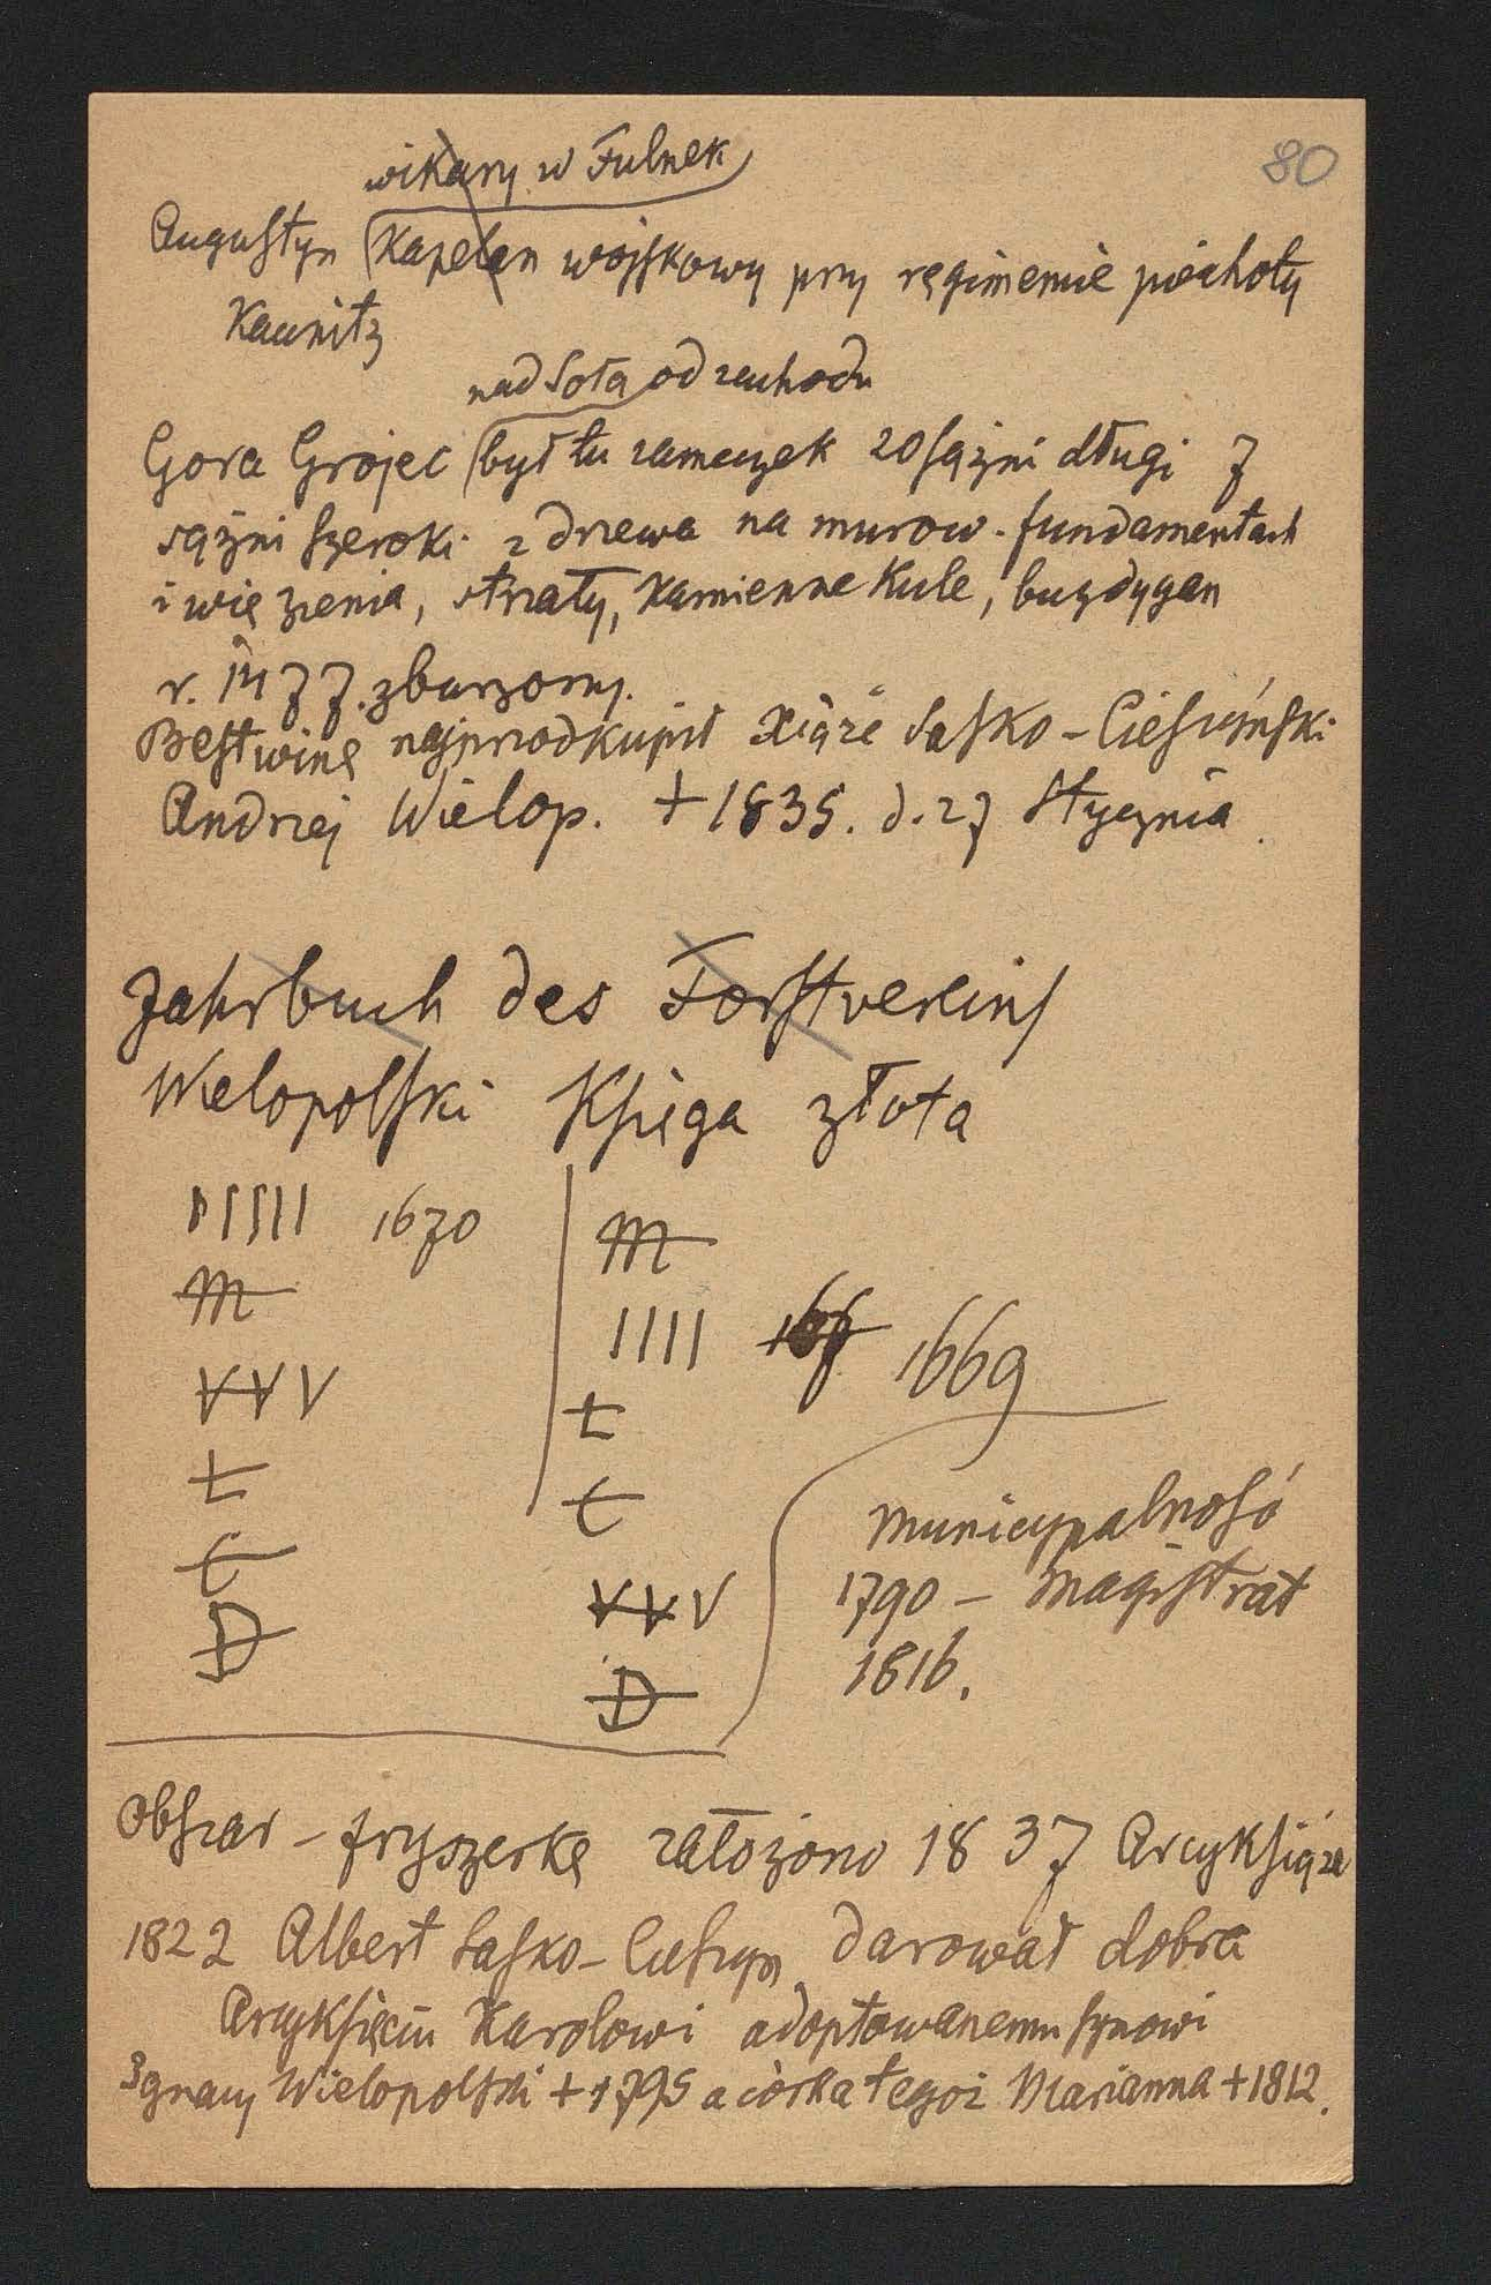 80
wikary w Fulnek
Augustyn Kapelan wojskowy przy regimencie piechoty
Kaunitz
nad Sołą od zachodu
Gora Grojec był tu zameczek 20 sążni długi 7
sążni szeroki z drzewa na murow. fundamentach
i więzienia, strzały, kamienne kule, buzdygan
r. 1477. zburzony.
Bestwinę najprzod kupił Xiąże Sasko-Cieszyński
Andrzej Wielop. +1835. d. 27 stycznia.
Jahrbuch des Forstvereins
Wielopolski Księga złota
IIIII 1670
m
VVV
t
t
D
m
IIII 166 1669
t
t
VVV
D
Municypalność
1790 – Magistrat
1816.
Obszar – fryszerkę założono 1837 Arcyksiąże
1822 Albert Sasko-Cieszyn darował dobra
Arcyksięciu Karolowi adoptowanemu synowi
Ignacy Wielopolski +1795 a córka tegoż Marianna +1812.